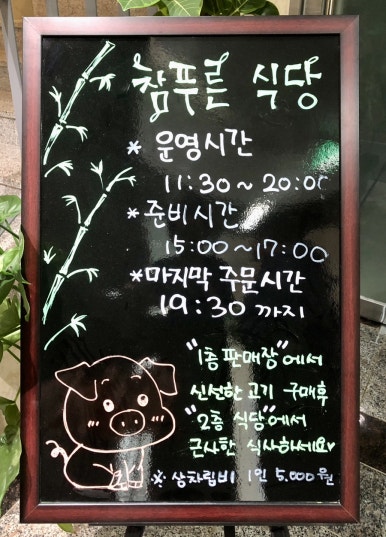 참푸른 식당
* 운영시간
11:30~20:00
* 준비시간
15:00~17:00
*마지막 주문시간
19:30 까지
"1층 판매장"에서
신선한 고기 구매후
"2층 식당"에서
근사한 식사하세요♥
※ 상차림비 1인 5,000원